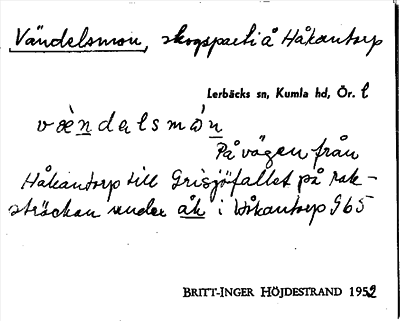 Vändelsmon, skogsparti å Håkantorp
Lerbäcks sn, Kumla hd, Ör. l
vèndalsmón
På vägen från
Håkantorp till Grisjöfallet på rak-
sträckan under åk i Håkantorp 965
BRITT-INGER HÖJDESTRAND 1952